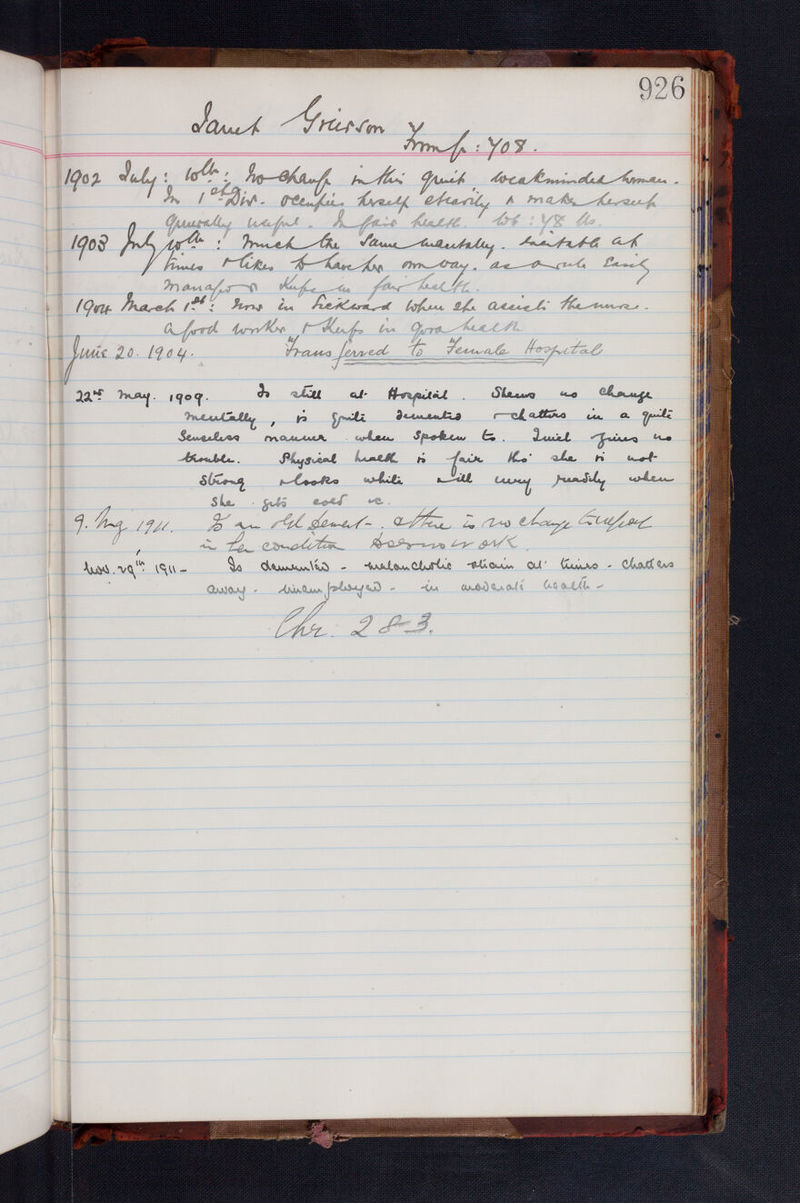 926
Janet Grierson
From p: 708.
1902 July: 10th: No change in this quiet weakminded woman.
In 1st Div. occupies herself steadily & makes herself
generally useful. In fair health. Wt: 98 lbs.
1903 July 10th: Much the same mentally. Excitable at
times & likes to have her own way. as a rule easily
managed & keeps in fair health.
1904 March 1st: Now in Sickward where she assists the nurse.
A good worker & keeps in good health
June 20. 1904. Transferred to Female Hospital
22nd May. 1909. Is still at Hospital. Shews no change
mentally, is quite demented & chatters in a quite
senseless manner when spoken to. Quiet gives no
trouble. Physical health is fair tho' she is not
strong & looks white & ill very readily when
she gets cold &c.
9. Aug 1911. Is an old dement -. & there is no change to report
in her condition Does no work.
Nov. 29th 1911 - Is demented - melancholic strain at times - chatters
away - unemployed - in moderate health -
Chr. 283.